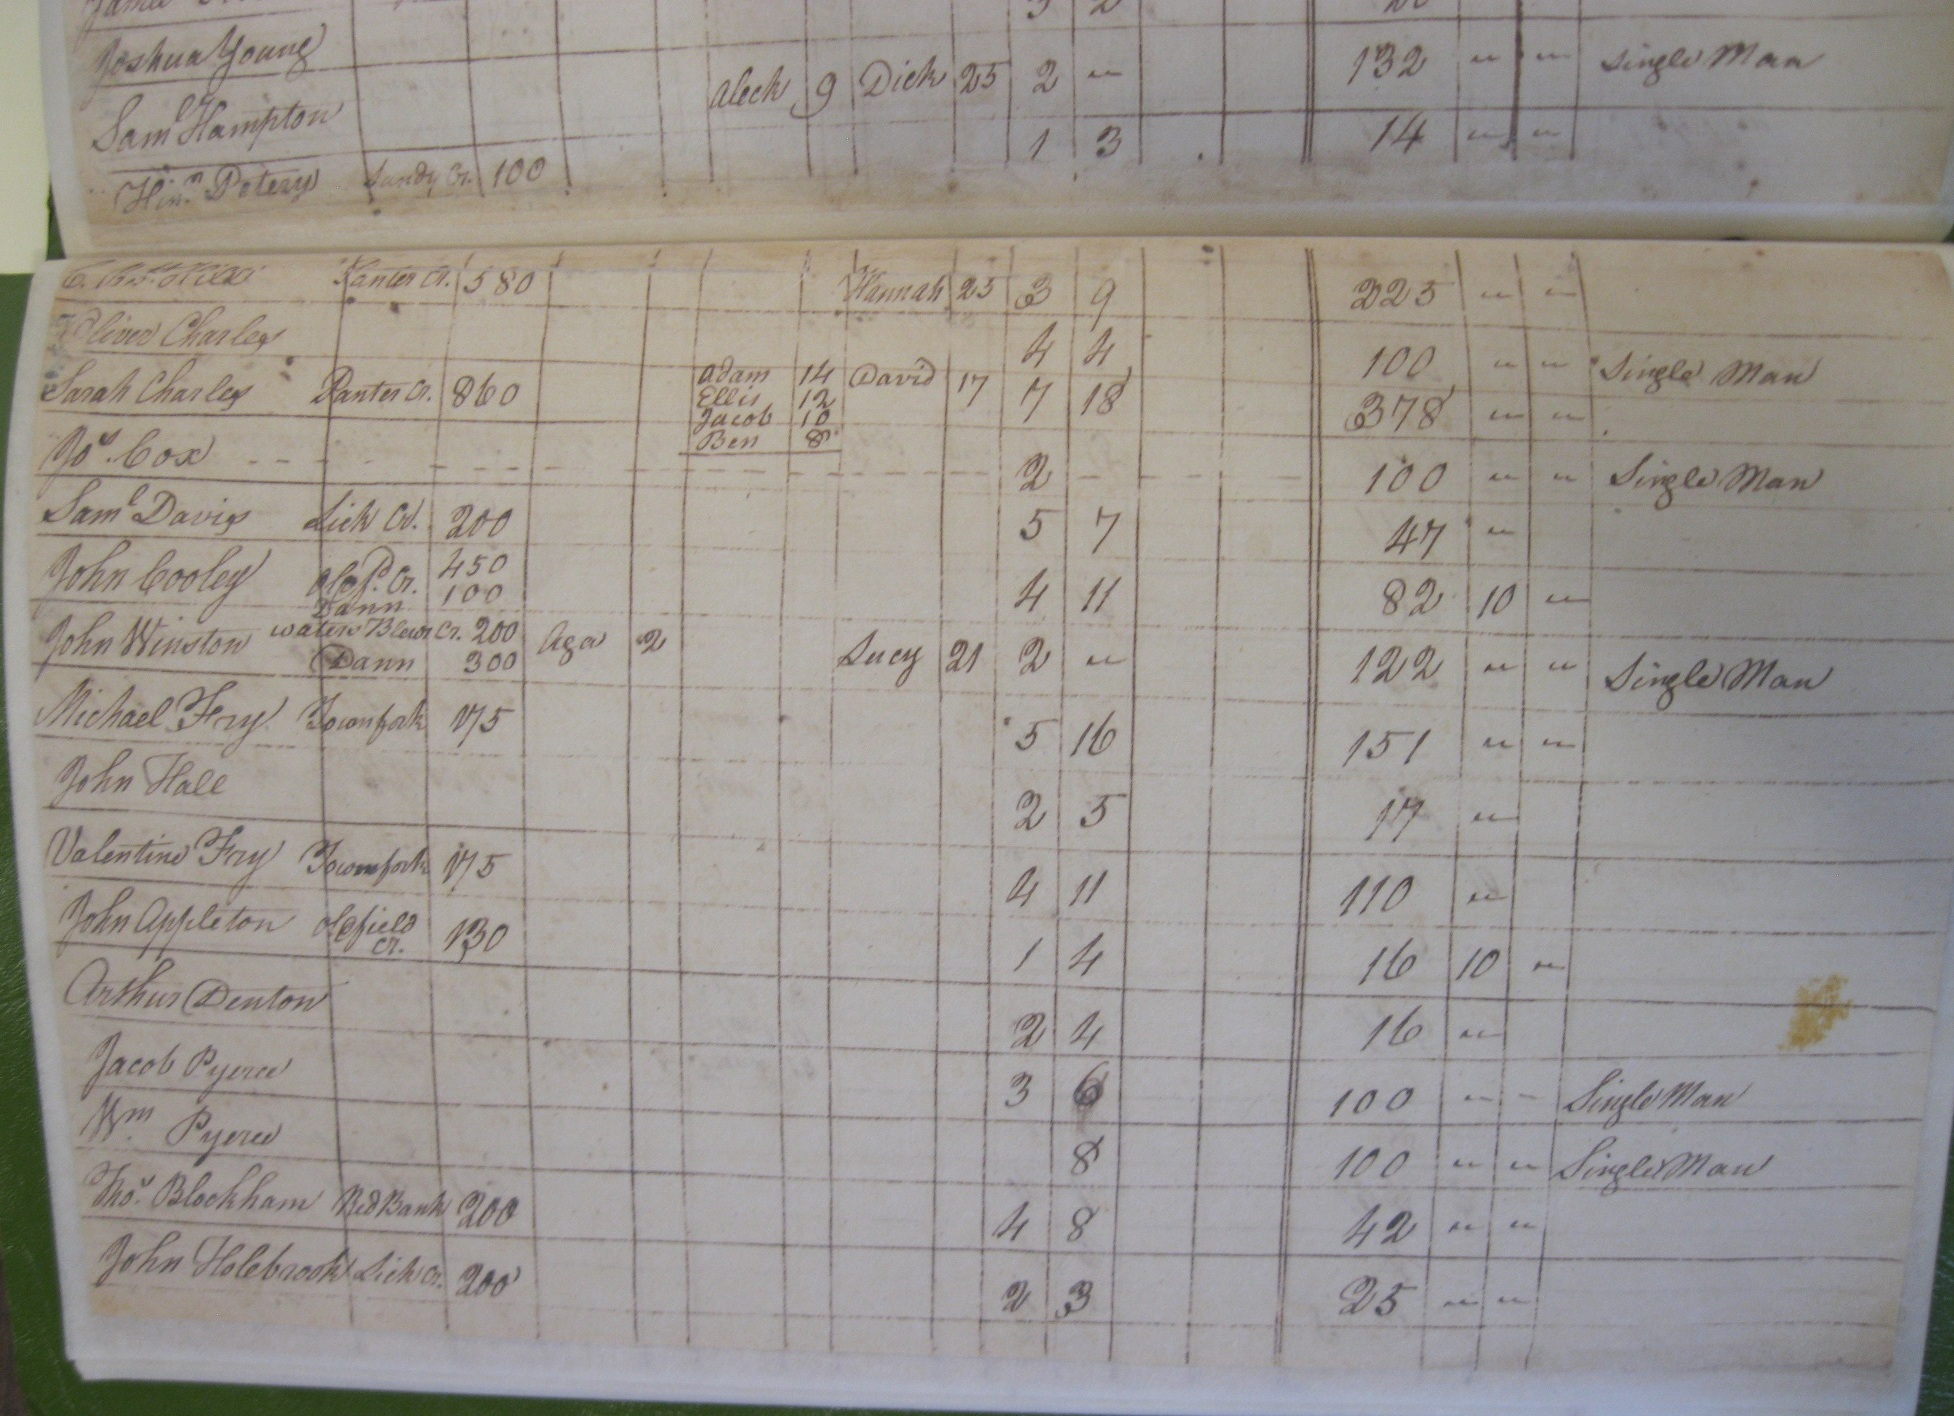 3 2
Joshua Young Aleck 9 Dick 25 2 " 132 " " Single Man
Saml Hampton 1 3 14 " "
Sandy Cr. 100
Panter Cr. 580 Hannah 25 3 9 225 " "
Oliver Charles 4 4 100 " " Single Man
Sarah Charles Panter Cr. 860 Adam 14 David 17 7 18 378 " "
Ellis 12
Jacob 10
Ben 8
Jos. Cox 2 - 100 " " Single Man
Saml Davis Lick Cr. 200 5 7 47 "
John Cooley Cr. 450 4 11 82 10 "
Dann 100
John Winston Cr. 200 Aga 2 Lucy 21 2 " 122 " " Single Man
Dann 300
Michael Fry Townfork 175 5 16 151 " "
John Hall 2 5 17 "
Valentine Fry Townfork 175 4 11 110 "
John Appleton oldfield Cr. 130 1 4 16 10 "
Arthur Denton 2 4 16 "
Jacob Pyerce 3 6 100 " - Single Man
Wm Pyerce 8 100 " " Single Man
Thos. Blockham Red Bank 200 4 8 42 " "
John Holebrook Lick Cr. 200 2 3 25 " "